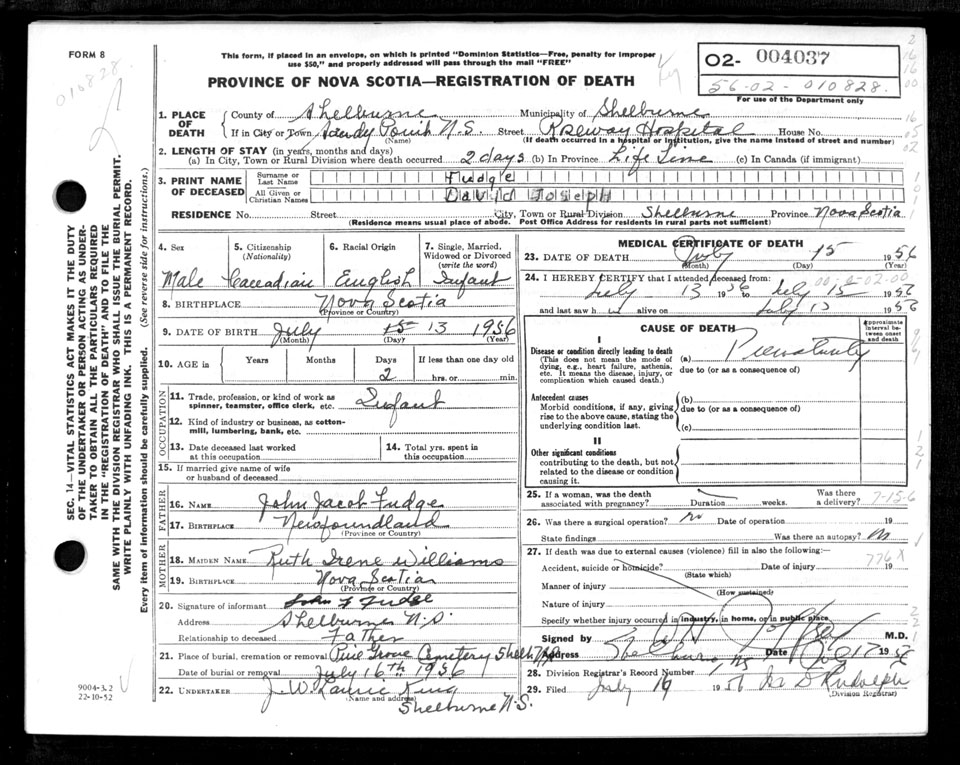 FORM 8
This form, if placed in an envelope, on which is printed "Dominion Statistics—Free, penalty for improper
use $50," and properly addressed will pass through the mail "FREE"
PROVINCE OF NOVA SCOTIA—REGISTRATION OF DEATH
02- 004037
56-02-010828
For use of the Department only
010828
SEC. 14—VITAL STATISTICS ACT MAKES IT THE DUTY
OF THE UNDERTAKER OR PERSON ACTING AS UNDER-
TAKER TO OBTAIN ALL THE PARTICULARS REQUIRED
IN THE "REGISTRATION OF DEATH" AND TO FILE THE
SAME WITH THE DIVISION REGISTRAR WHO SHALL ISSUE THE BURIAL PERMIT.
WRITE PLAINLY WITH UNFADING INK. THIS IS A PERMANENT RECORD.
Every item of information should be carefully supplied. (See reverse side for instructions.)
1. PLACE OF DEATH County of Shelburne Municipality of Shelburne
If in City or Town Sandy Point N.S. Street Roseway Hospital House No.
(Name) (If death occurred in a hospital or institution, give the name instead of street and number)
2. LENGTH OF STAY (in years, months and days)
(a) In City, Town or Rural Division where death occurred 2 days (b) In Province Life Time (c) In Canada (if immigrant)
3. PRINT NAME OF DECEASED
Surname or Last Name Fudge
All Given or Christian Names David Joseph
RESIDENCE No. Street City, Town or Rural Division Shelburne Province Nova Scotia
(Residence means usual place of abode. Post Office Address for residents in rural parts not sufficient)
4. Sex Male
5. Citizenship (Nationality) Canadian
6. Racial Origin English
7. Single, Married, Widowed or Divorced (write the word) Infant
8. BIRTHPLACE Nova Scotia
(Province or Country)
9. DATE OF BIRTH July 15 13 1956
(Month) (Day) (Year)
10. AGE in Years Months Days 2 If less than one day old hrs. or min.
OCCUPATION
11. Trade, profession, or kind of work as spinner, teamster, office clerk, etc. Infant
12. Kind of industry or business, as cotton-mill, lumbering, bank, etc.
13. Date deceased last worked at this occupation
14. Total yrs. spent in this occupation
15. If married give name of wife or husband of deceased
FATHER
16. NAME John Jacob Fudge
17. BIRTHPLACE Newfoundland
(Province or Country)
MOTHER
18. MAIDEN NAME Ruth Irene Williams
19. BIRTHPLACE Nova Scotia
(Province or Country)
20. Signature of informant John J Fudge
Address Shelburne N.S
Relationship to deceased Father
21. Place of burial, cremation or removal Pine Grove Cemetery Shelb
Date of burial or removal July 16th 1956
22. UNDERTAKER J.W. Laurie King
(Name and address)
Shelburne N.S.
9004-3.2
22-10-52
MEDICAL CERTIFICATE OF DEATH
23. DATE OF DEATH July 15 1956
(Month) (Day) (Year)
24. I HEREBY CERTIFY that I attended deceased from:
July 13 1956 to July 15 1956
and last saw h alive on July 15 1956
CAUSE OF DEATH
Approximate interval between onset and death
I
Disease or condition directly leading to death
(This does not mean the mode of dying, e.g., heart failure, asthenia, etc. It means the disease, injury, or complication which caused death.)
(a) Prematurity
due to (or as a consequence of)
Antecedent causes
Morbid conditions, if any, giving rise to the above cause, stating the underlying condition last.
(b)
due to (or as a consequence of)
(c)
II
Other significant conditions
contributing to the death, but not related to the disease or condition causing it.
25. If a woman, was the death associated with pregnancy? Duration weeks. Was there a delivery? 7-15-6
26. Was there a surgical operation? no Date of operation 19
State findings Was there an autopsy? no
27. If death was due to external causes (violence) fill in also the following:—
776X
Accident, suicide or homicide? Date of injury 19
(State which)
Manner of injury
(How sustained)
Nature of injury
Specify whether injury occurred in industry, in home, or in public place
Signed by M.D.
Address Shelburne, NS Date July 17 1956
28. Division Registrar's Record Number
29. Filed July 19 1956 Rudolph
(Division Registrar)